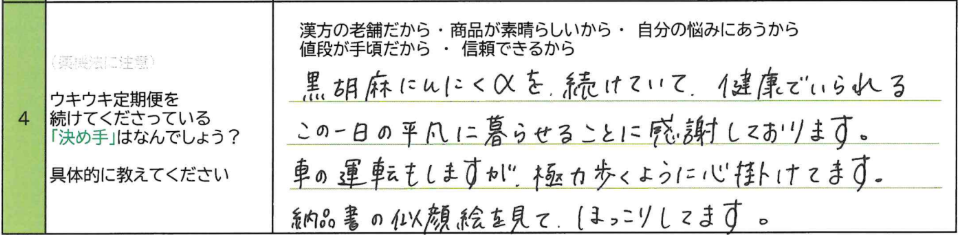 4
(薬機法に注意)
ウキウキ定期便を
続けてくださっている
「決め手」はなんでしょう？
具体的に教えてください
漢方の老舗だから・商品が素晴らしいから・ 自分の悩みにあうから
値段が手頃だから ・ 信頼できるから
黒胡麻にんにくαを、続けていて、健康でいられる
この一日の平凡に暮らせることに感謝しております。
車の運転もしますが、極力歩くように心掛けてます。
納品書の似顔絵を見て、ほっこりしてます。